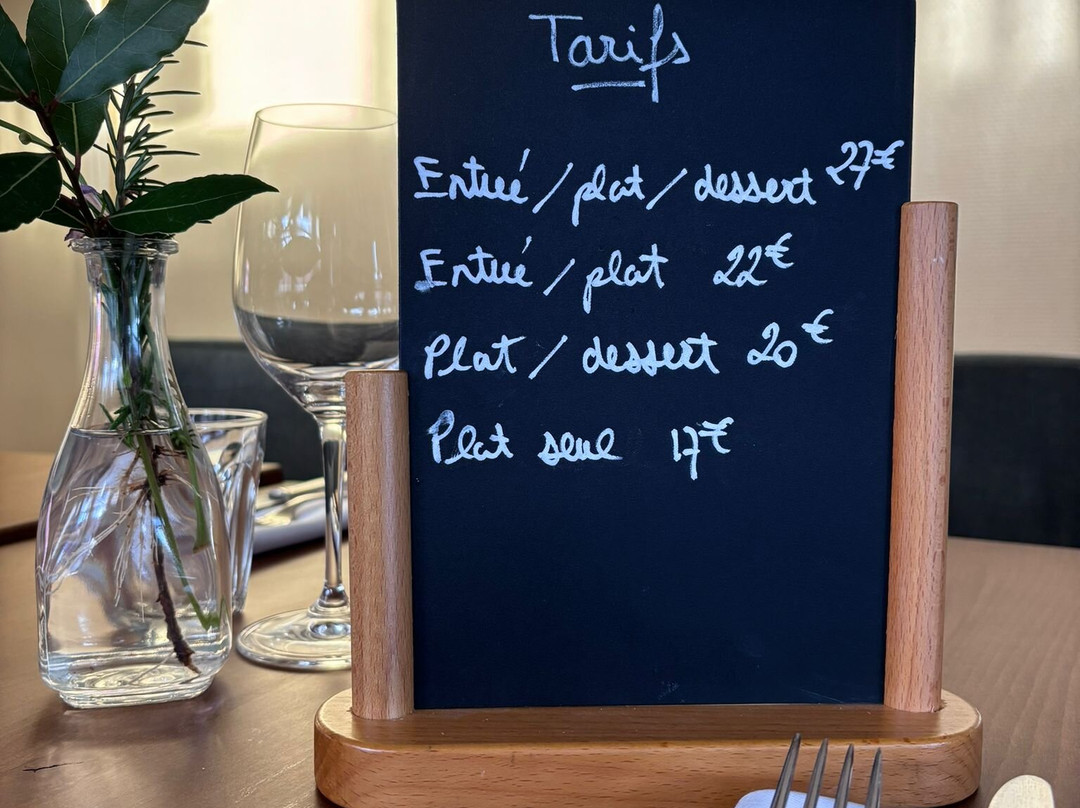 Tarifs
Entrée/plat/dessert 27€
Entrée/plat 22€
Plat/dessert 20€
Plat seul 17€